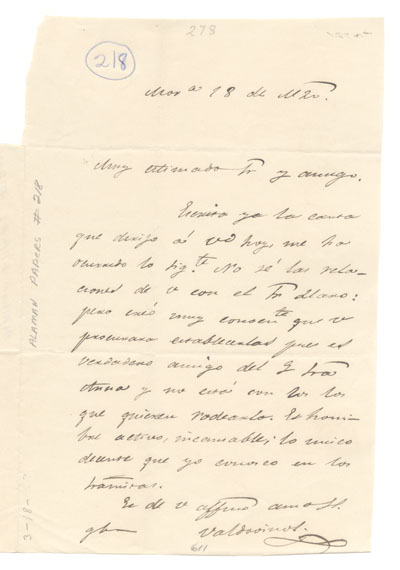 278
218
Morª 18 de Mzo.
Muy estimado Sr y amigo.
Escrita ya la carta
que dirijo á vd hoy, me ha
ocurrido lo sigte. No sé las rela-
ciones de v con el Sr Llano:
pero creo muy convente que v
procurara establecerlas pues es
verdadero amigo del Sr Sta
Anna y no está con los los
que quieren rodearlo. Es hom-
bre activo, incansable; lo unico
decente que yo conosco en los
Es de v affmo amo
Valdovinos.
611
ALAMAN PAPERS # 218
3-18-